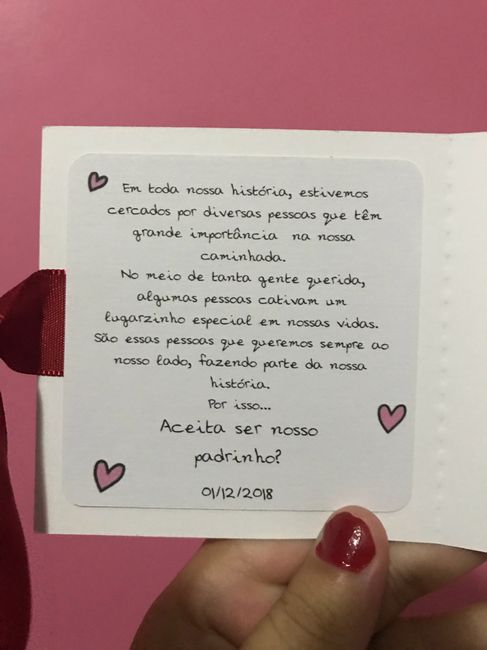 Em toda nossa história, estivemos
cercados por diversas pessoas que têm
grande importância na nossa
caminhada.
No meio de tanta gente querida,
algumas pessoas cativam um
lugarzinho especial em nossas vidas.
São essas pessoas que queremos sempre ao
nosso lado, fazendo parte da nossa
história.
Por isso...
Aceita ser nosso
padrinho?
01/12/2018